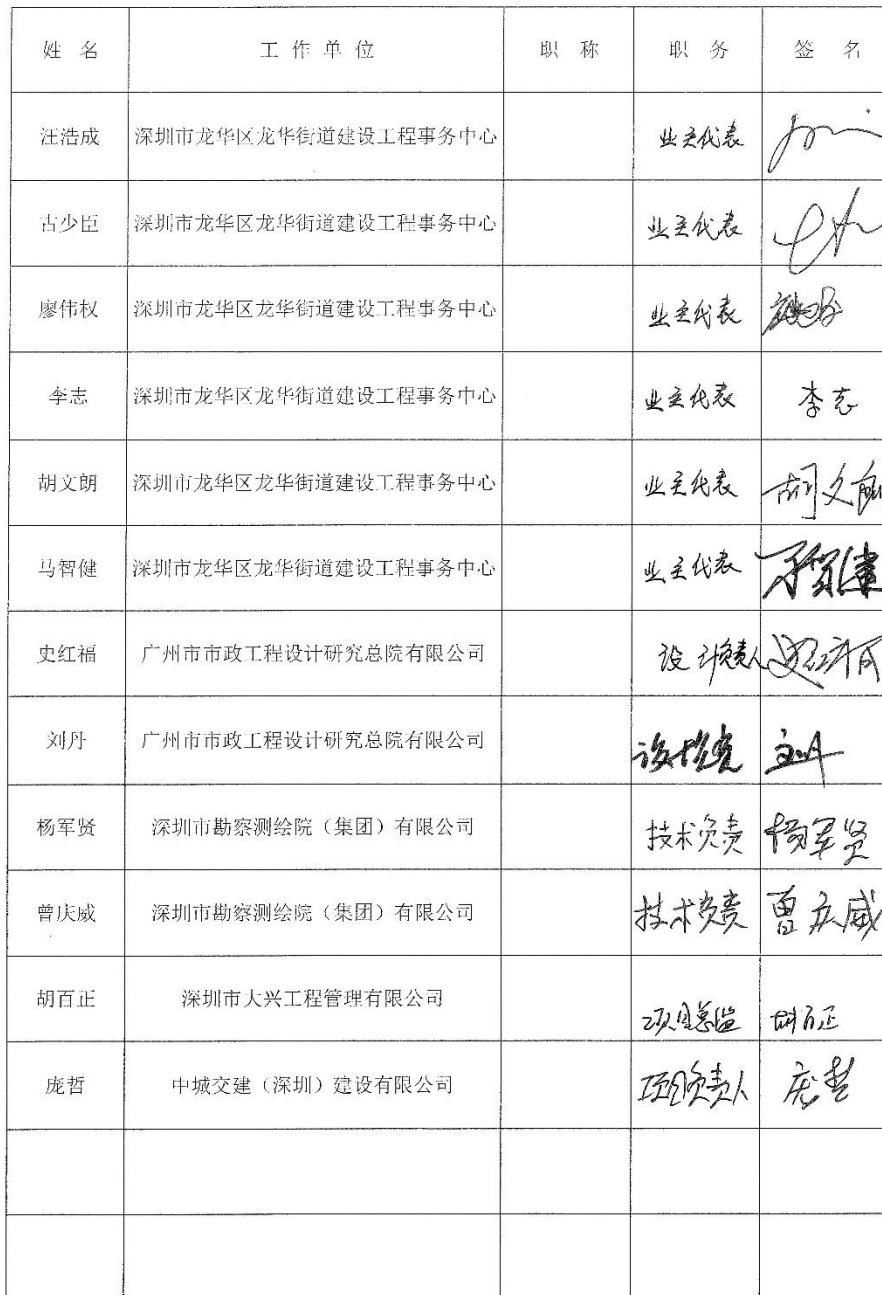 姓 名 工 作 单 位 职 称 职 务 签 名
汪浩成 深圳市龙华区龙华街道建设工程事务中心 业主代表
古少臣 深圳市龙华区龙华街道建设工程事务中心 业主代表
廖伟权 深圳市龙华区龙华街道建设工程事务中心 业主代表
李志 深圳市龙华区龙华街道建设工程事务中心 业主代表 李志
胡文朗 深圳市龙华区龙华街道建设工程事务中心 业主代表 胡文朗
马智健 深圳市龙华区龙华街道建设工程事务中心 业主代表
史红福 广州市市政工程设计研究总院有限公司 设计负责人
刘丹 广州市市政工程设计研究总院有限公司
杨军贤 深圳市勘察测绘院（集团）有限公司 技术负责 杨军贤
曾庆威 深圳市勘察测绘院（集团）有限公司 技术负责 曾庆威
胡百正 深圳市大兴工程管理有限公司 项目总监 胡百正
庞哲 中城交建（深圳）建设有限公司 项目负责人 庞哲